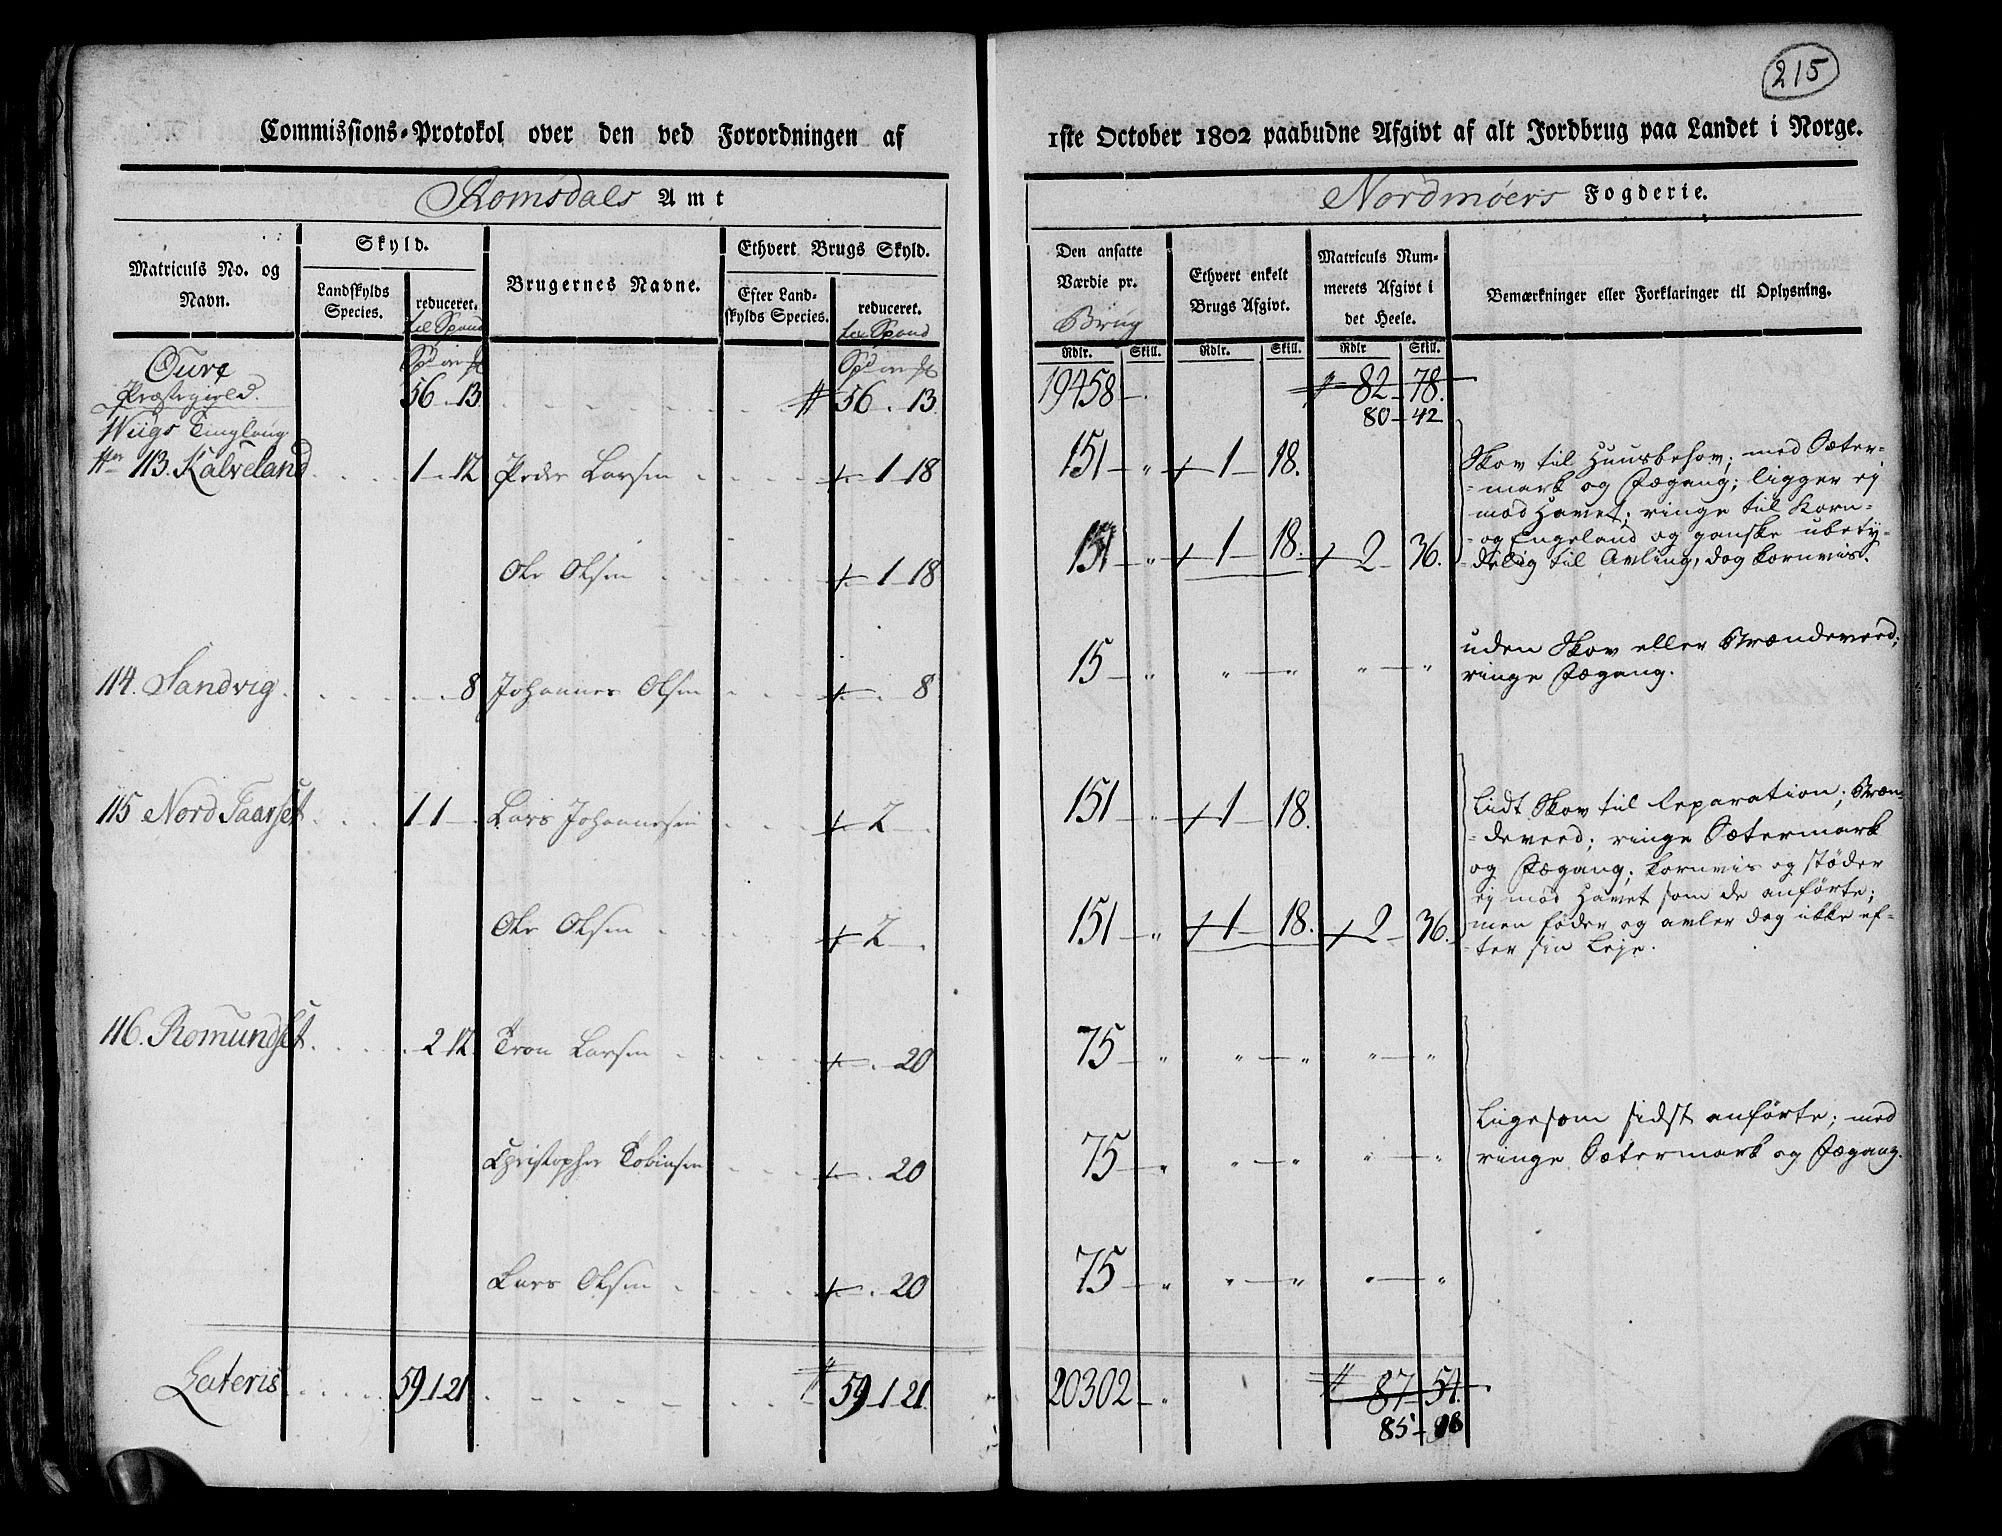 215
Commissions-Protokol over den ved Forordningen af 1ste October 1802 paabudne Afgivt af alt Jordbrug paa Landet i Norge.
Romsdals Amt
Nordmøers Fogderie.
Matriculs No. og Navn.
Skyld.
Landskylds Species.
reduceret.
til Spand
Brugernes Navne.
Ethvert Brugs Skyld.
Efter Landskylds Species.
reduceret.
til Spand
Den ansatte Værdie pr.
Brug
Ethvert enkelt Brugs Afgivt.
Matriculs Nummerets Afgivt i det Heele.
Bemærkninger eller Forklaringer til Oplysning.
Rdlr. Skill. Rdlr. Skill. Rdlr Skill.
Øure
Præstegield. 56 . 13 56 . 13 19458 82 - 78.
80 - 42
Wiigs Tinglaug
113. Kalveland 1 - 12 Peder Larsen 1 - 18 151 - " 1 - 18.
Ole Olsen 1 - 18 151 - " 1 - 18. 2 - 36.
Skov til Huusbehov; med Sæter-
mark og Fægang; ligger ej
mod Havet; ringe til Korn-
og Engeland og ganske ubety-
delig til Avling, dog kornvis.
114. Sandvig 8 Johannes Olsen 8 15 - " " - " " - "
uden Skov eller Brændeveed;
ringe Fægang.
115 Nord Saarset 1 1 - Lars Johannesen 2 - 151 - " 1 - 18.
Ole Olsen 2 - 151 - " 1 - 18. 2 - 36.
Lidt Skov til Reparation; Bræn-
deveed; ringe Sætermark
og Fægang; kornvis og støder
ej mod Havet som de anførte;
men føder og avler dog ikke ef-
ter sin Leje.
116. Romundset 2 12 Tron Larsen 20 75 - " " - " " - "
Christopher Tobiasen 20 75 - " " - " " - "
Lars Olsen 20 75 - " " - " " - "
Ligesom sidst anførte; med
ringe Sætermark og Fægang.
Lateris 59 - 1 - 21 59 - 1 - 21 20302 - " 87 - 54.
85 -